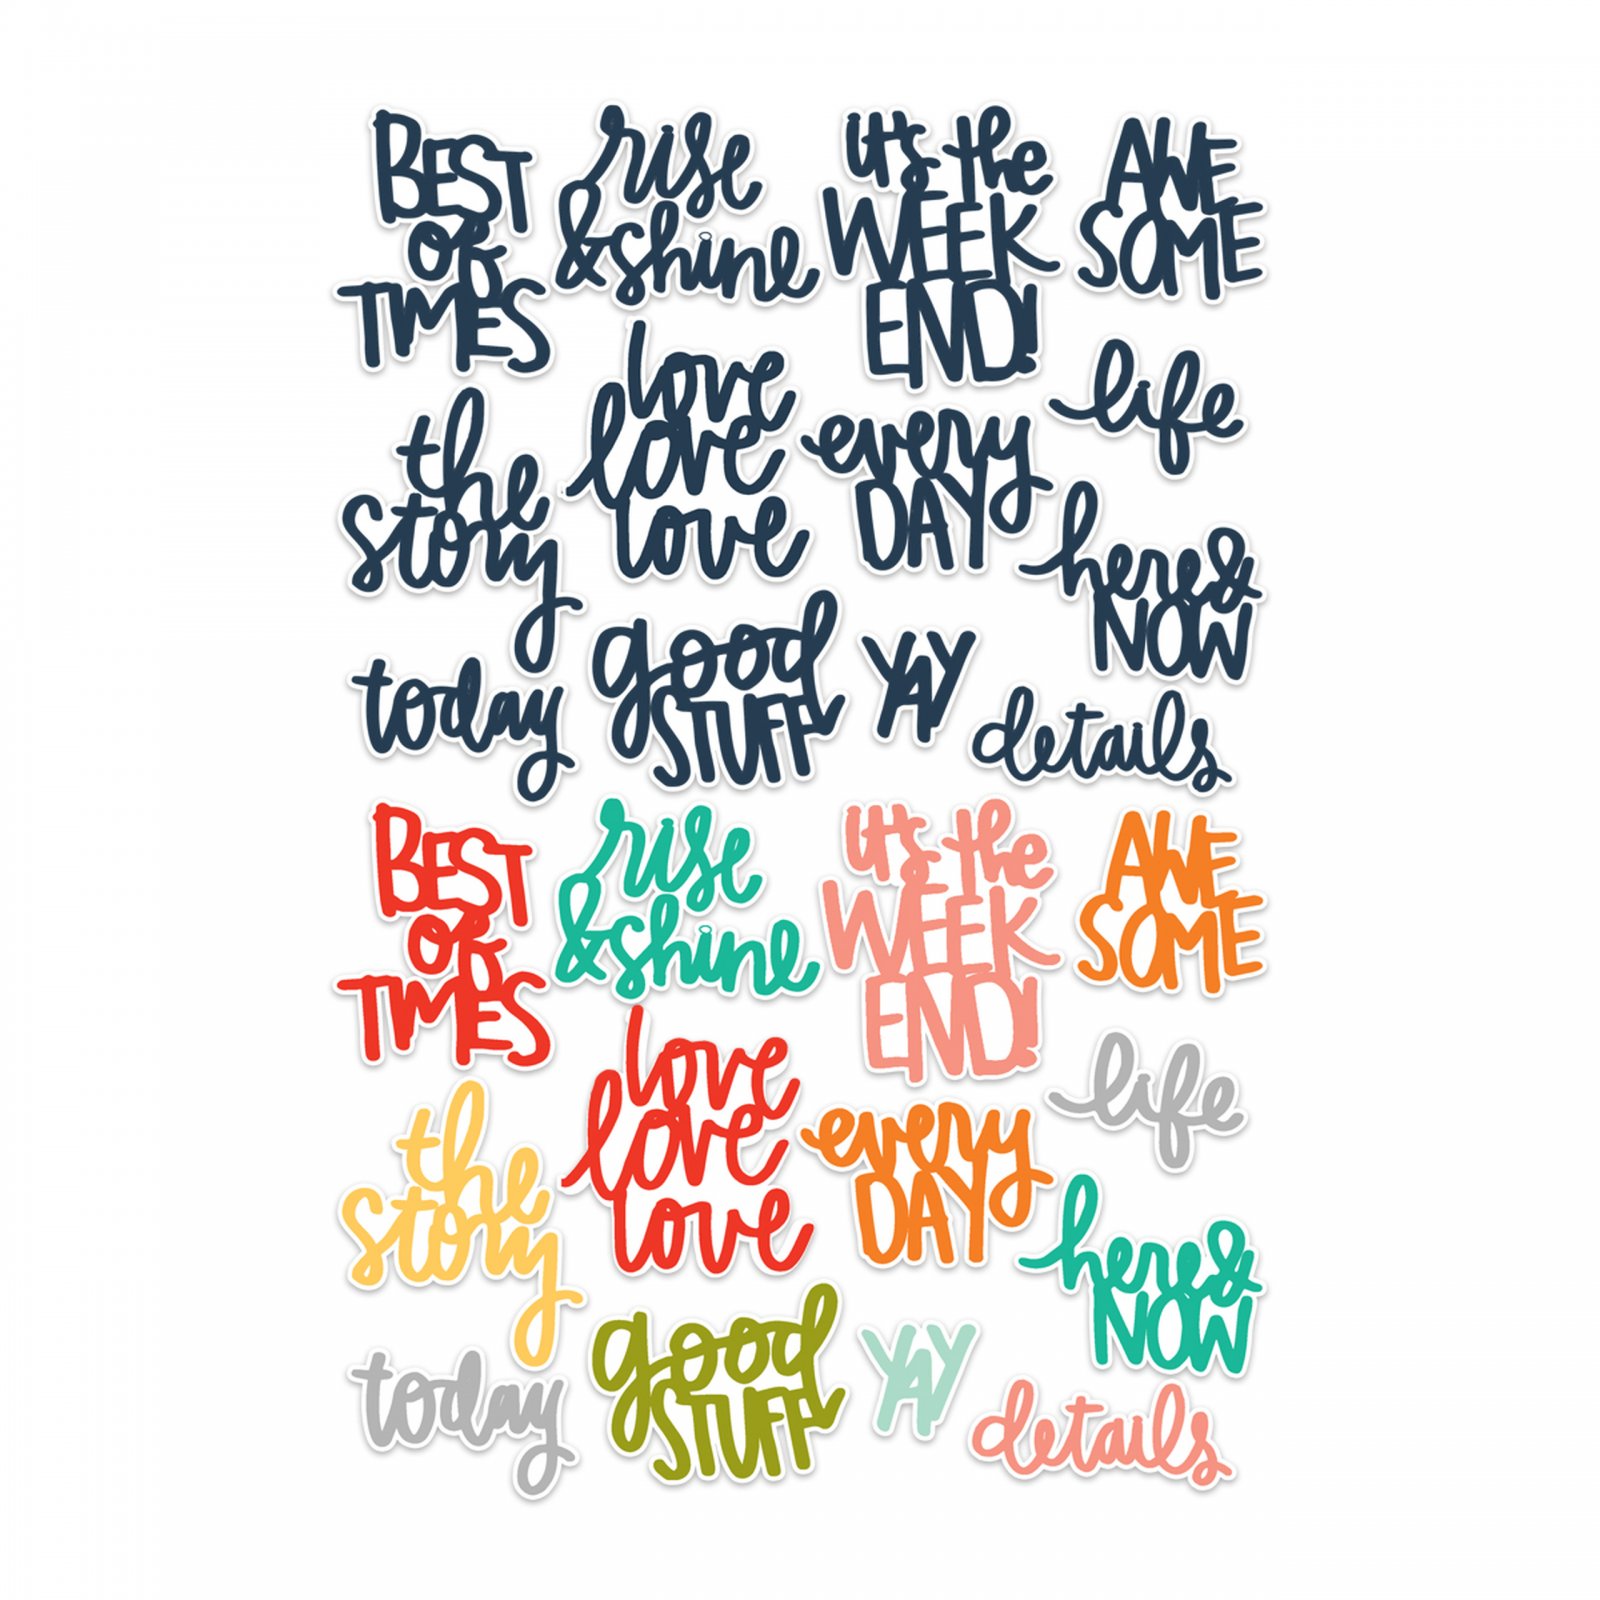 BEST
of
TIMES
rise
&shine
it's the
WEEK
END!
AWE
SOME
the
story
love
love
love
every
DAY
life
here&
NOW
today
good
STUFF
YAY
details
BEST
of
TIMES
rise
&shine
it's the
WEEK
END!
AWE
SOME
the
story
love
love
love
every
DAY
life
here&
NOW
today
good
STUFF
YAY
details